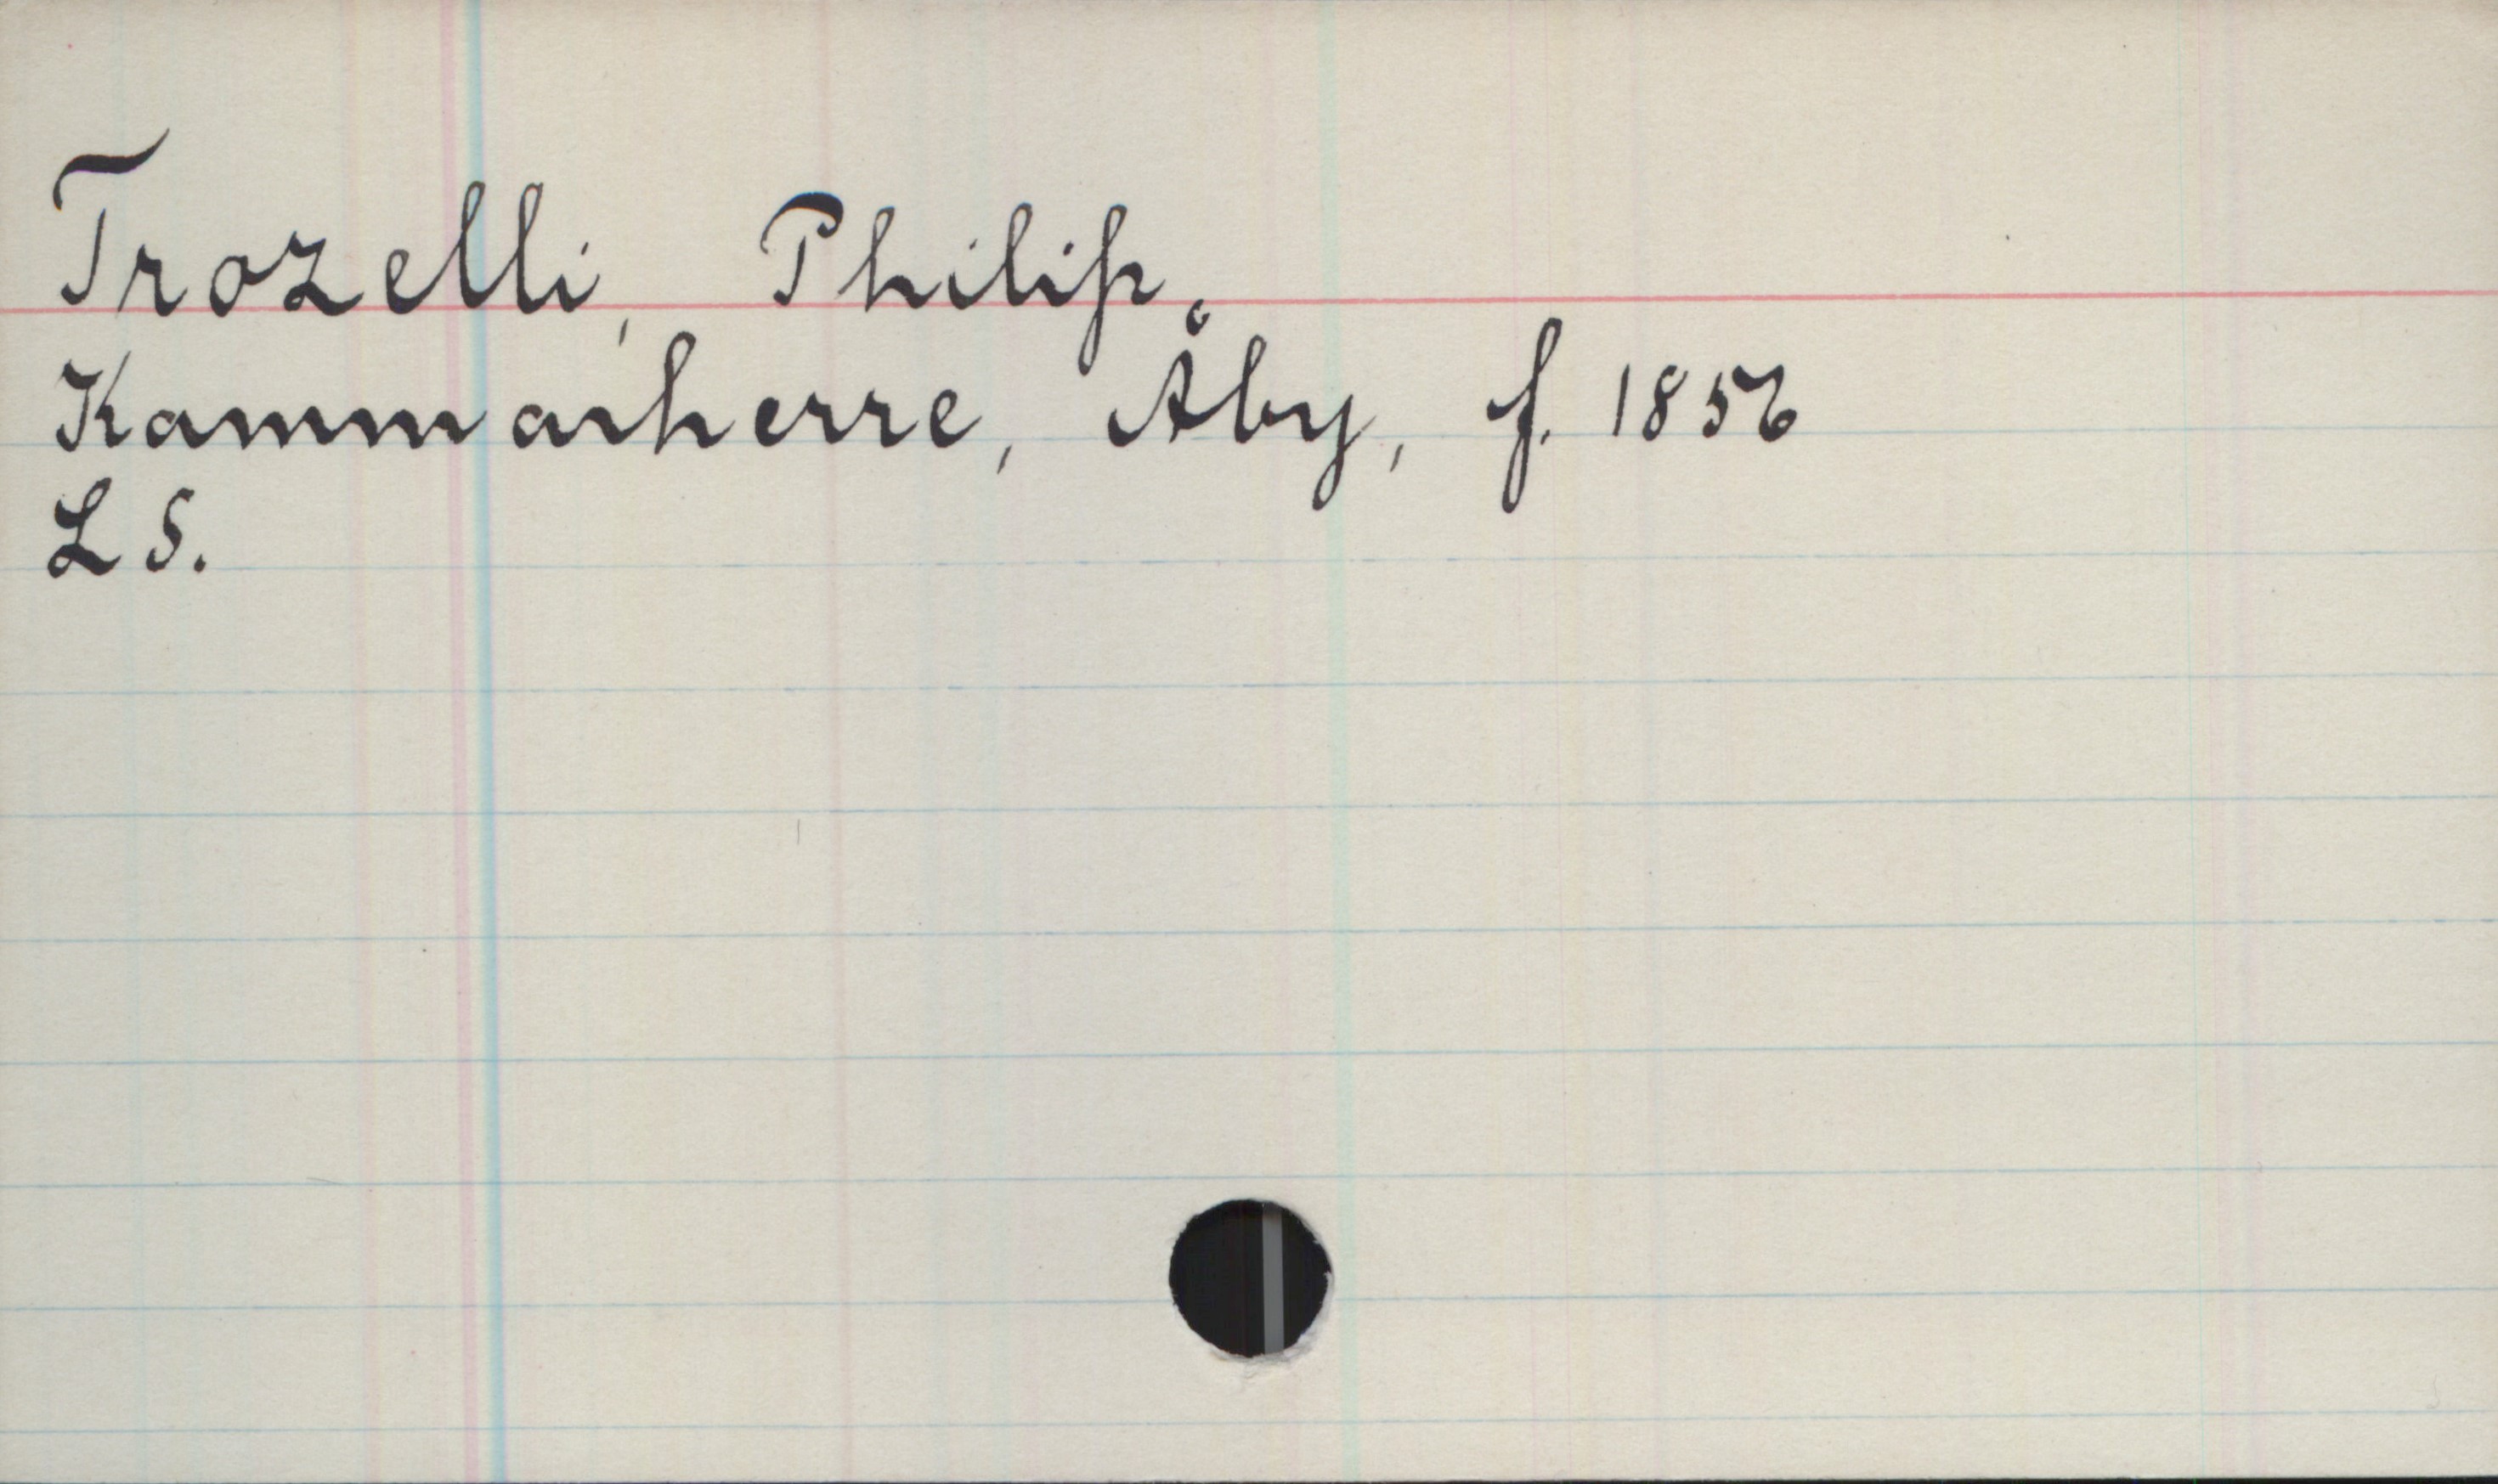 Trozelli, Philip
Kammarherre, Åby, f. 1856
L S.